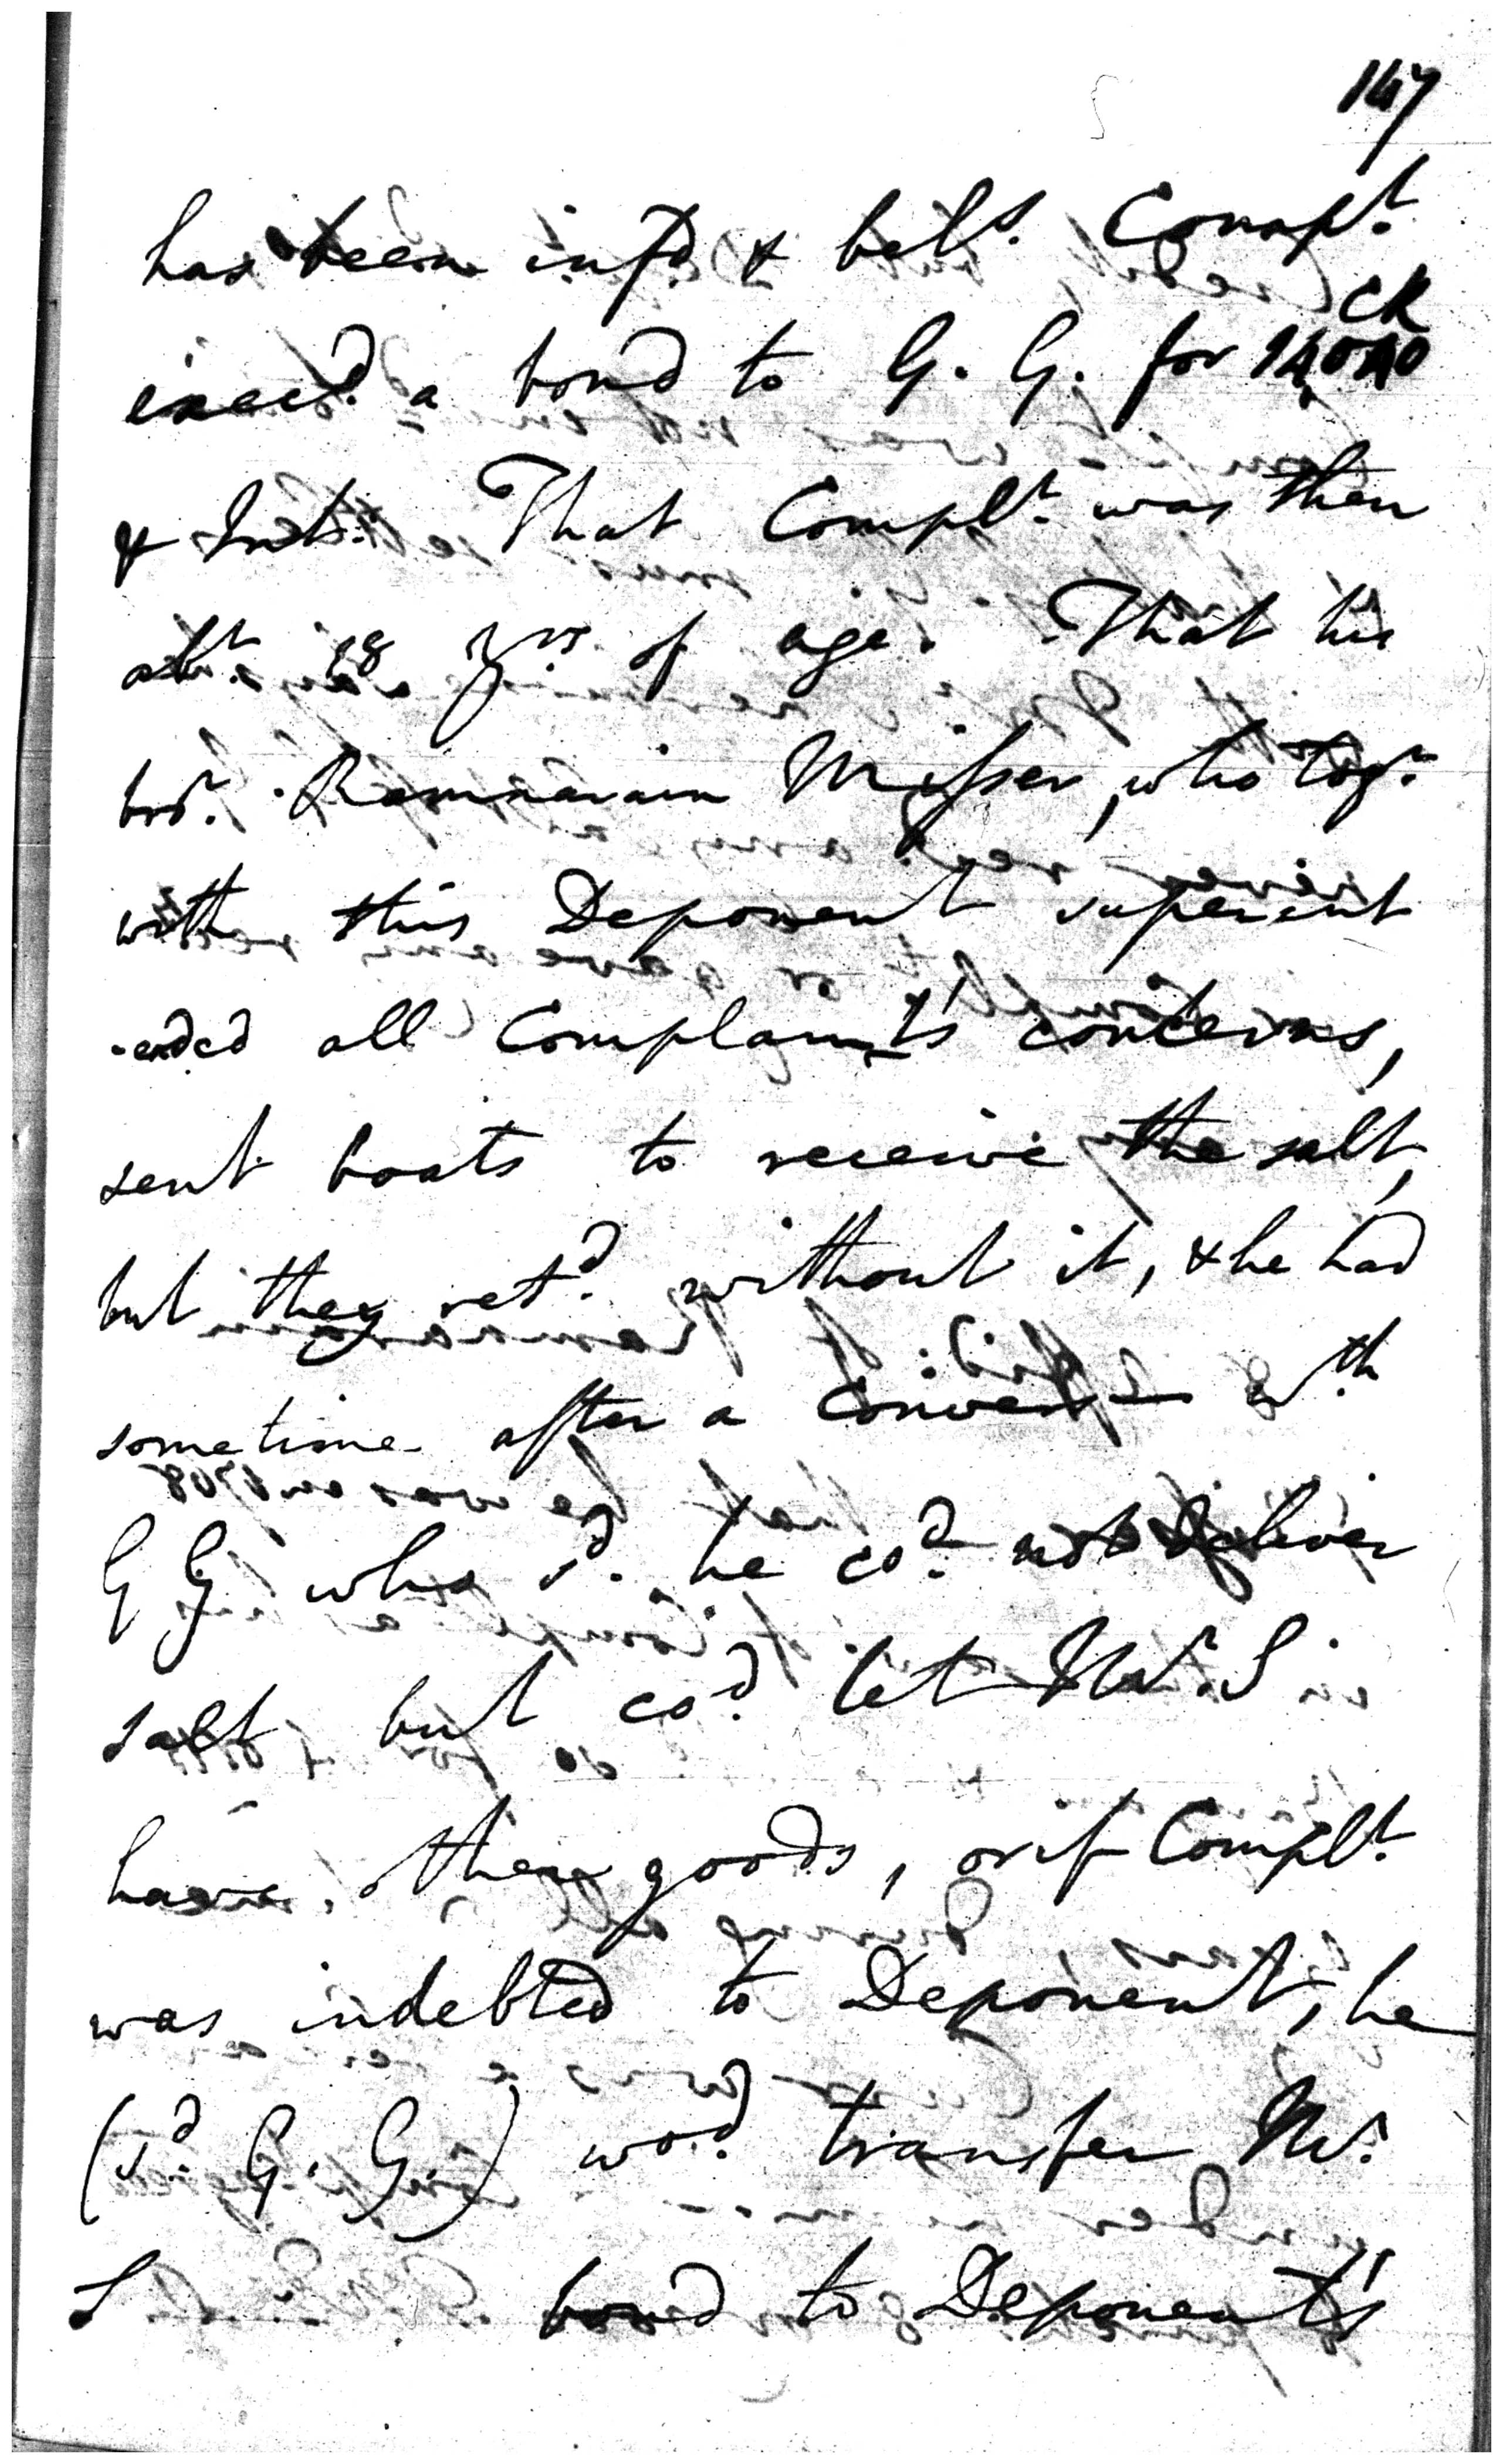 147
has been infd. & bels. Complt.
CR
execd. a bond to G. G. for 14000
& Int. That Complt. was then
abt. 18 yrs. of age. That his
bror. Ramnarain Misser, who togr.
with this Deponent superint
-ended all Complaints concerns,
sent boats to receive the salt,
but they retd. without it, & he had
sometime after a Convers wth
G G who sd. he cod. not deliver
salt but cod. let Mr. S
have other goods, or if Complt.
was indebted to Deponent, he
(sd. G. G.) wod. transfer Mr.
S bond to Deponent's